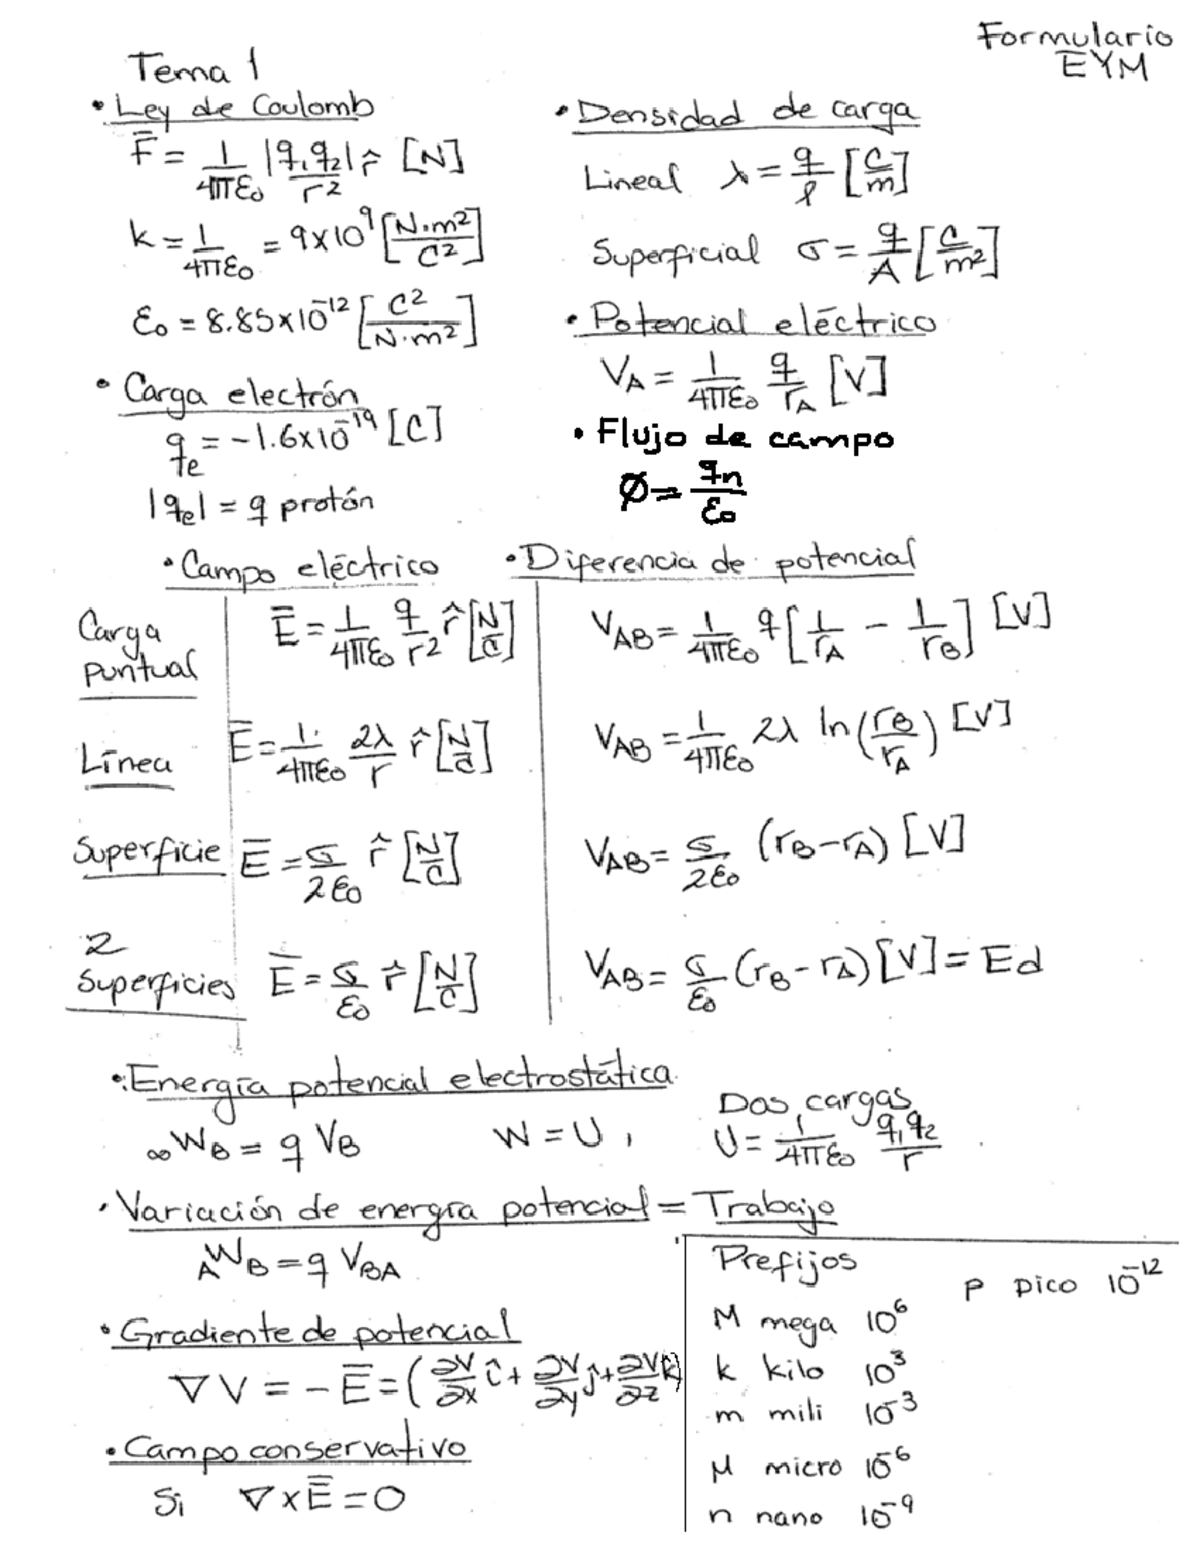 Formulario
EYM
Tema 1
• Ley de Coulomb
F̅ = 1/4πε₀ |q₁q₂|/r² r̂ [N]
k = 1/4πε₀ = 9x10⁹ [N·m²/C²]
ε₀ = 8.85x10⁻¹² [C²/N·m²]
• Carga electrón
qe = -1.6x10⁻¹⁹ [C]
|qe| = q protón
• Densidad de carga
Lineal λ = q/ℓ [C/m]
Superficial σ = q/A [C/m²]
• Potencial eléctrico
V_A = 1/4πε₀ q/r_A [V]
• Flujo de campo
Ø = qn/ε₀
• Campo eléctrico • Diferencia de potencial
Carga puntual E̅ = 1/4πε₀ q/r² r̂ [N/C] V_AB = 1/4πε₀ q[1/r_A - 1/r_B] [V]
Línea E̅ = 1/4πε₀ 2λ/r r̂ [N/C] V_AB = 1/4πε₀ 2λ ln(r_B/r_A) [V]
Superficie E̅ = σ/2ε₀ r̂ [N/C] V_AB = σ/2ε₀ (r_B-r_A) [V]
2 Superficies E̅ = σ/ε₀ r̂ [N/C] V_AB = σ/ε₀ (r_B-r_A) [V] = Ed
• Energía potencial electrostática
∞W_B = q V_B W = U, Dos cargas U = 1/4πε₀ q₁q₂/r
• Variación de energía potencial = Trabajo
_AW_B = q V_BA
• Gradiente de potencial
∇V = -E̅ = (∂V/∂x î + ∂V/∂y ĵ + ∂V/∂z k̂)
• Campo conservativo
Si ∇xE̅ = 0
Prefijos
p pico 10⁻¹²
M mega 10⁶
k kilo 10³
m mili 10⁻³
μ micro 10⁻⁶
n nano 10⁻⁹